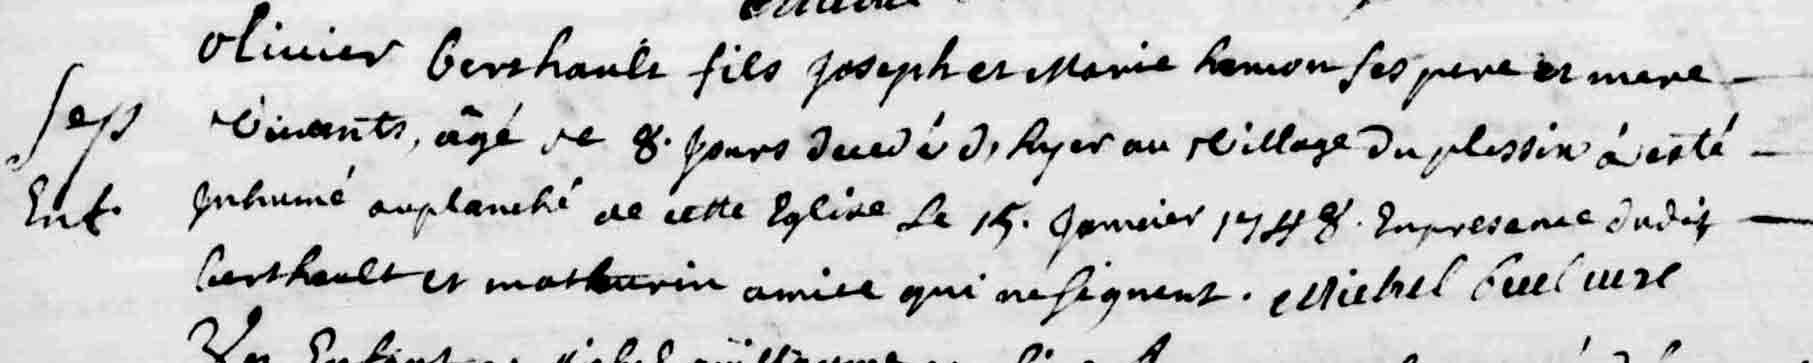 olivier berthault fils joseph et Marie hamon ses pere et mere
Sep
vivants, âgé de 8. jours decedé d'hyer au village du plessix à esté
Enf.
jnhumé au planché de cette Eglise Le 15. janvier 1748. En presence dudit
berthault et mathurin amice qui ne signent. Michel